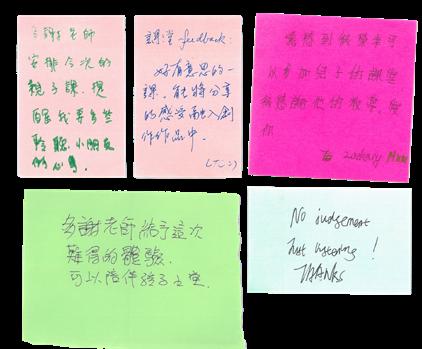 多謝老師
安排今次的
親子課,提
醒我要多些
聆聽小朋友
的心聲.
課堂feedback:
好有意思的一
課,能將分享
的感受融入創
作作品中.
感到很榮幸可
以參加兒子的課堂
感謝他的教導,愛
你
多謝老師給予這次
難得的體驗.
可以陪伴孩子上堂.
No judgement
Just listening!
THANKS